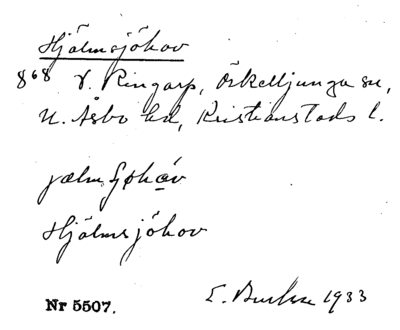 Hjälmsjöhov
868 V. Ringarp, Örkelljunga sn,
N. Åsbo hd, Kristianstads l.
Hjälmsjöhov
Nr 5507.
E. 1933